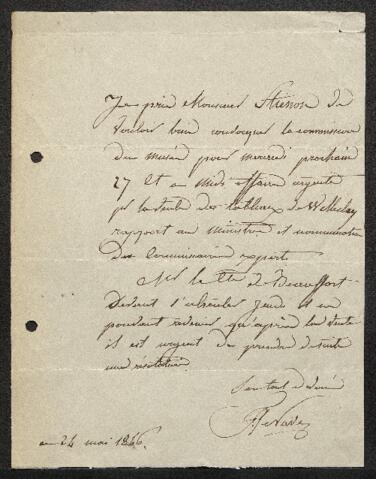 Je prie Monsieur Stiénon de
vouloir bien convoquer la commission
du musée pour mercredi prochain
27 Ct au midi affaire urgente
pr la vente des tableaux de
rapport au Ministre et nomination
des Commissaires experts
Mr le Cte de Beauffort
devant s'absenter jeudi et ne
pouvant revenir qu'après la vente
il est urgent de prendre de suite
une résolution.
Son tout dévoué
F J Navez
ce 24 mai 1846